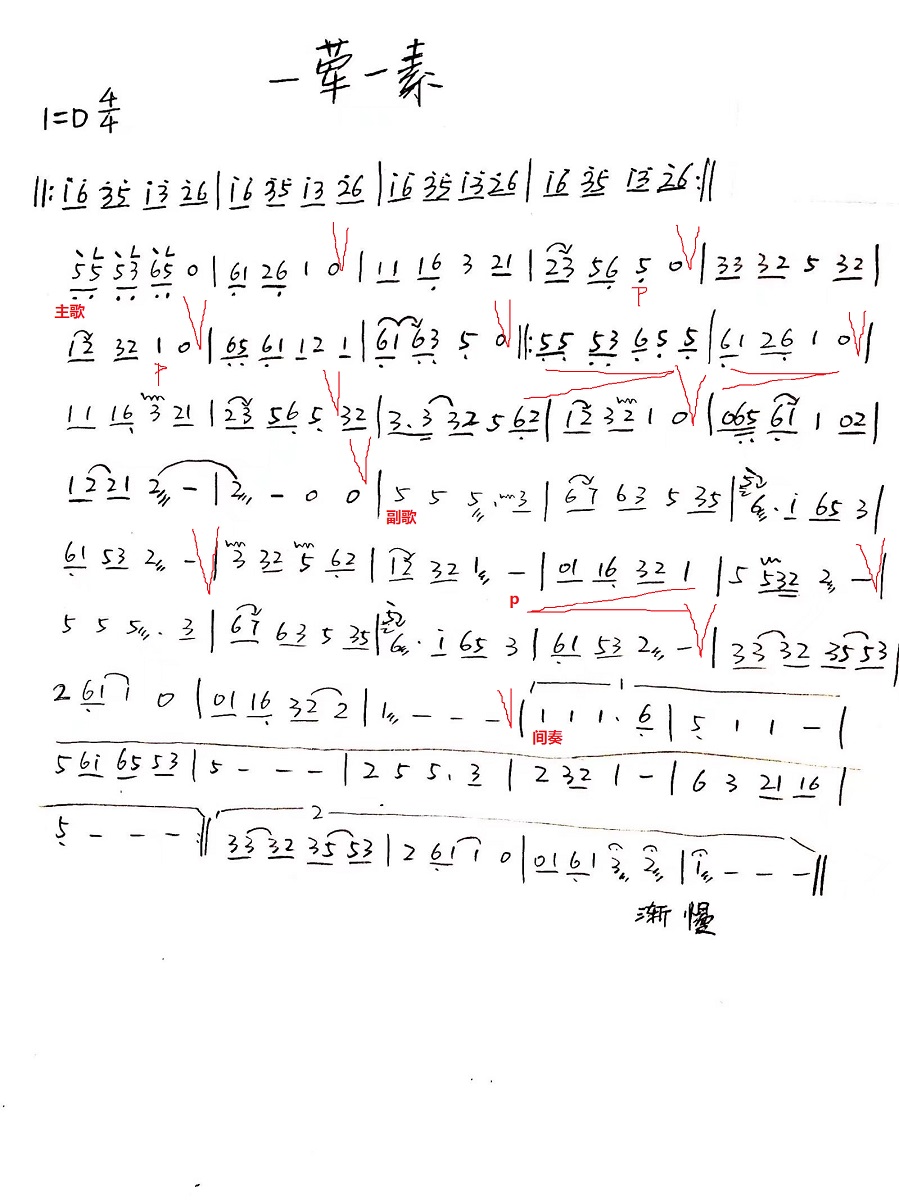 一荤一素
1=D 4/4
||: i6 35 i3 26 | i6 35 i3 26 | i6 35 i3 26 | i6 35 i3 26 :||
55 53 65 0 | 61 26 1 0 | 11 16 3 21 | 23 56 5 0 | 33 32 5 32 |
主歌 p
12 32 1 0 | 65 61 12 1 | 61 63 5 0 ||: 55 53 65 5 | 61 26 1 0 |
p
11 16 3 21 | 23 56 5 32 | 3.3 32 5 62 | 12 32 1 0 | 065 61 1 02 |
12 21 2 - | 2 - 0 0 | 5 5 5. 3 | 61 63 5 35 | 52 6. i 65 3 |
副歌
61 53 2 - | 3 32 5 62 | 12 32 1 - | 01 16 32 1 | 5 532 2 - |
p
5 5 5. 3 | 61 63 5 35 | 52 6. i 65 3 | 61 53 2 - | 33 32 35 53 |
2 61 1 0 | 01 16 32 2 | 1 - - - | 1 1 1. 6 | 5 1 1 - |
1
间奏
5 6i 65 53 | 5 - - - | 2 5 5. 3 | 2 32 1 - | 6 3 21 16 |
5 - - - :|| 33 32 35 53 | 2 61 1 0 | 01 61 3 2 | 1 - - - ||
2
渐慢